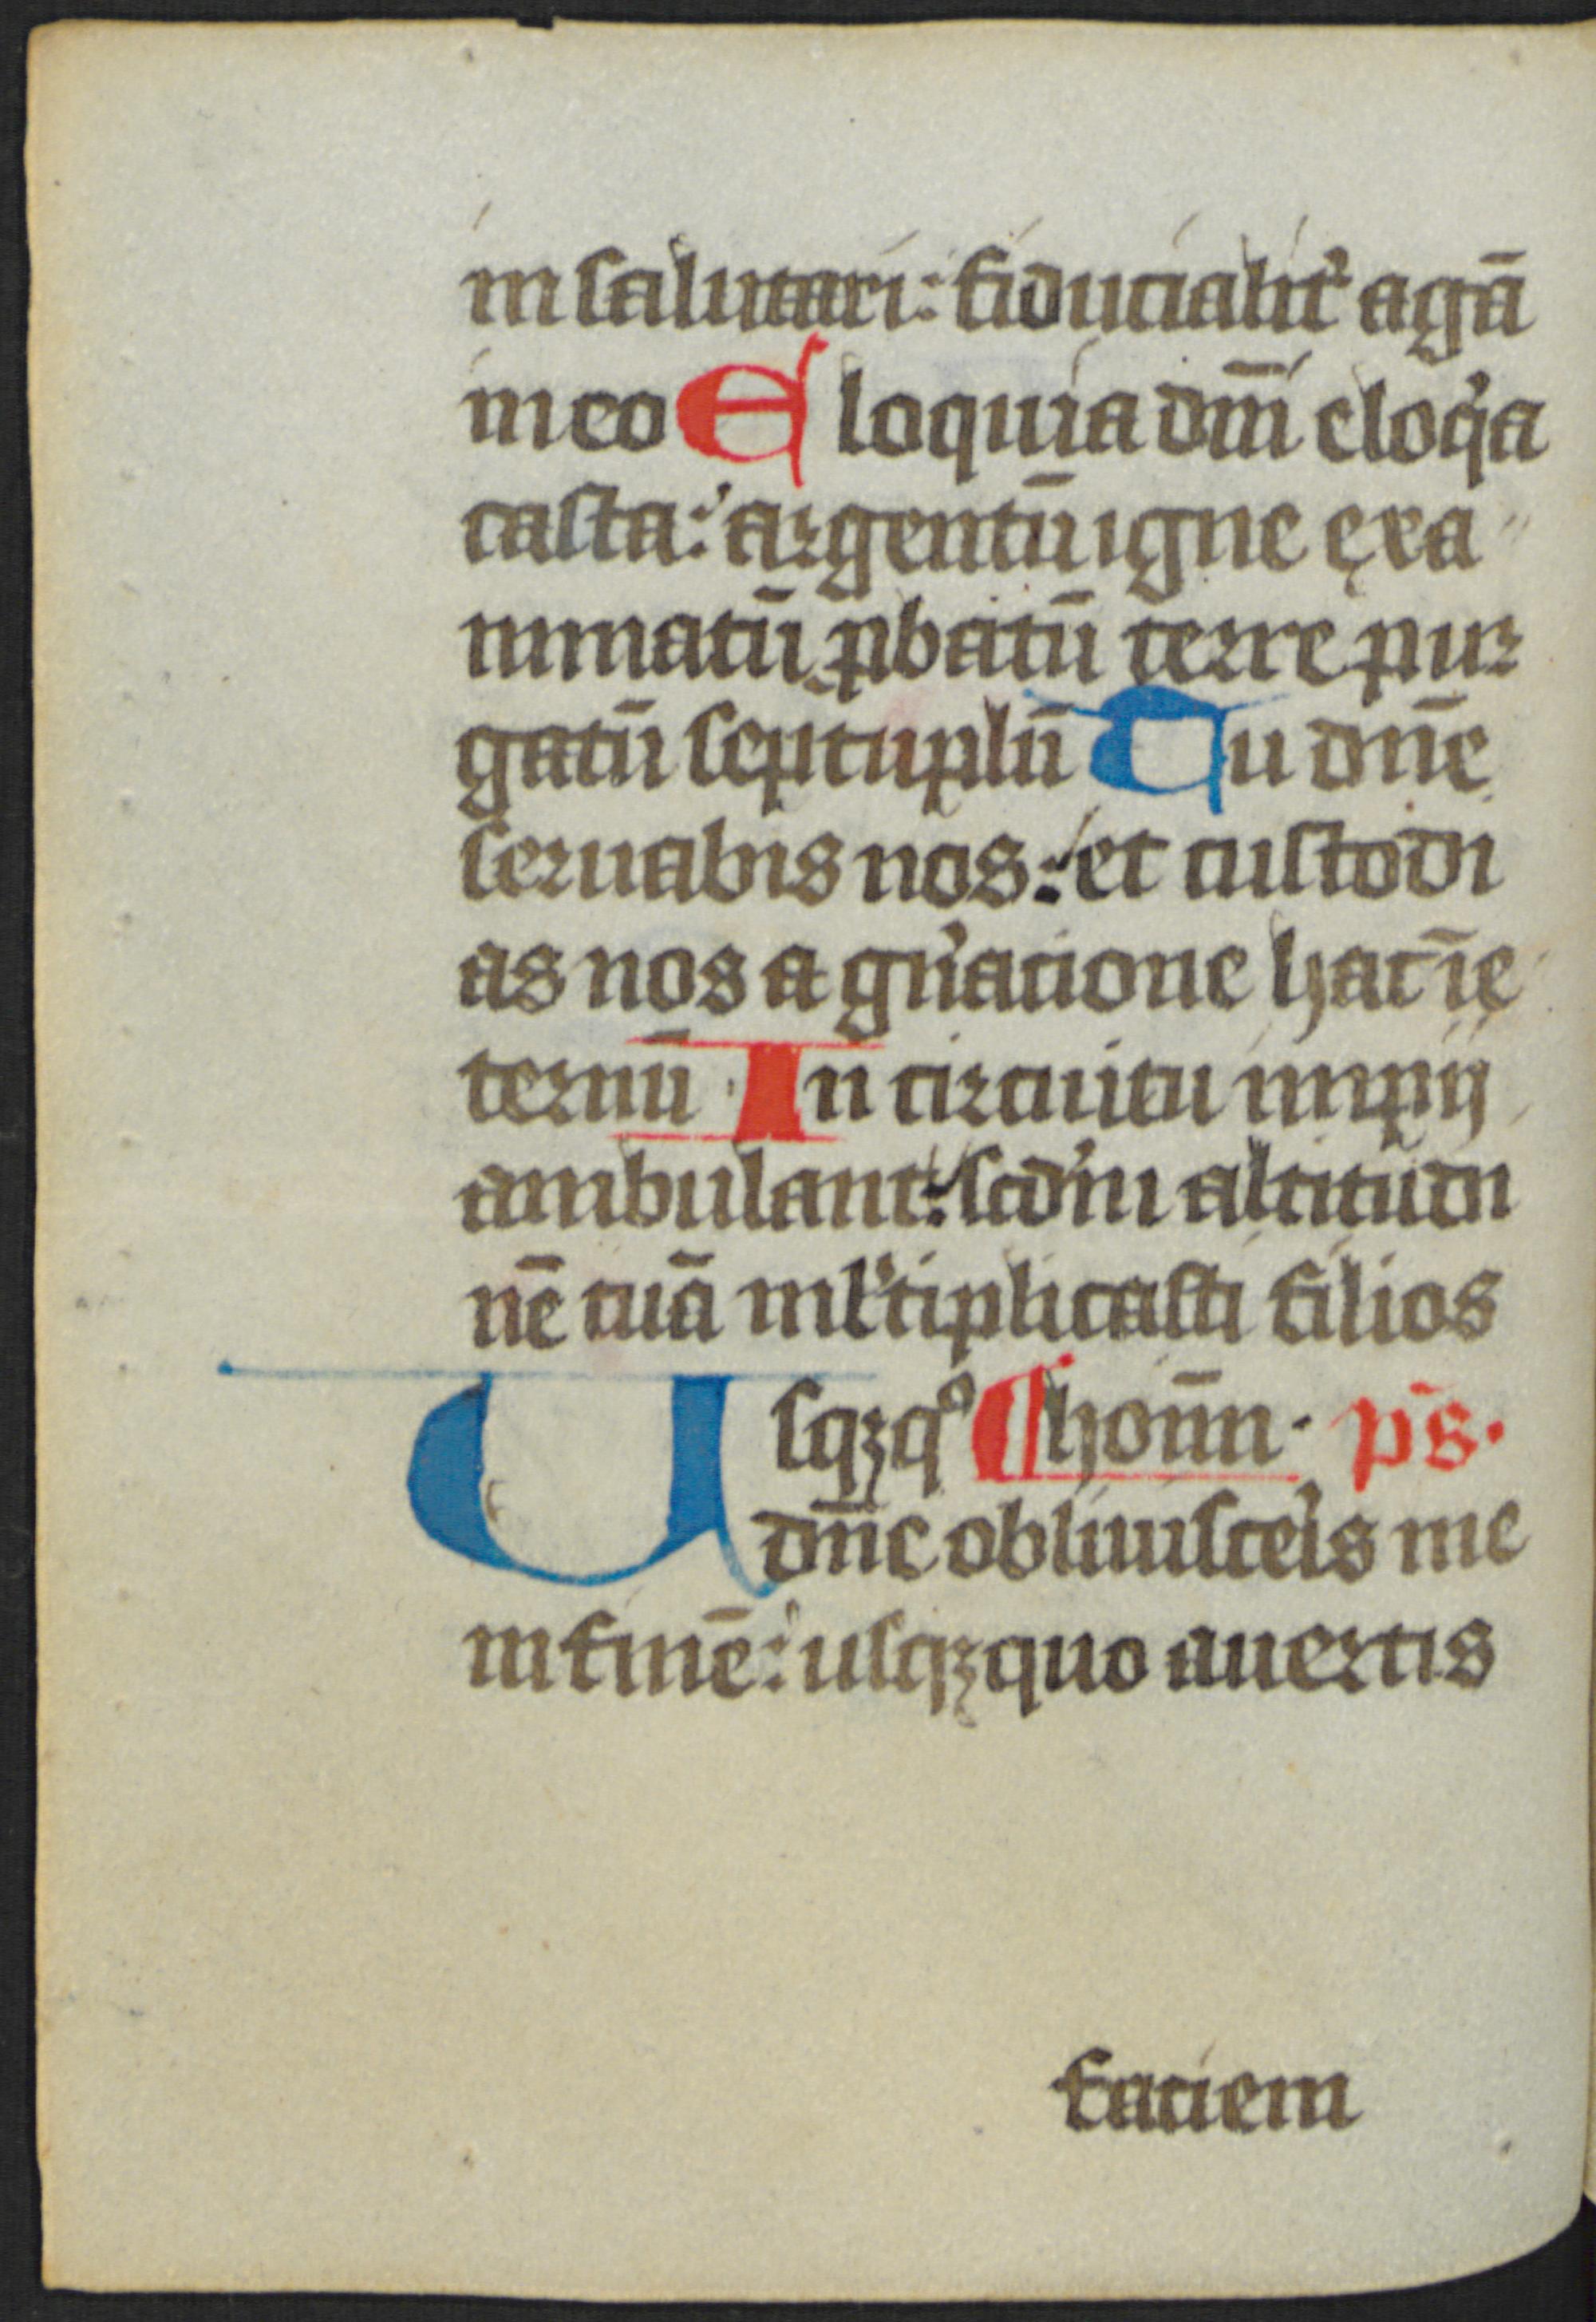 in salutari: fiducialit᷑ agā
in eo Eloquia dn̄i eloq̓a
casta: argentū igne exa
minatū ꝓbatū terre pur
gatū septuplū Tu dn̄e
seruabis nos: et custodi
as nos a gn̓atione hac ī e
ternū In circuitu impij
ambulant: scd̓m altitudi
nē tuā ml̓tiplicasti filios
Usqꝫqͦ ¶ hoīm. pˉs.
dn̄e obliuisce̓is me
in finē: usqꝫquo auertis
faciem